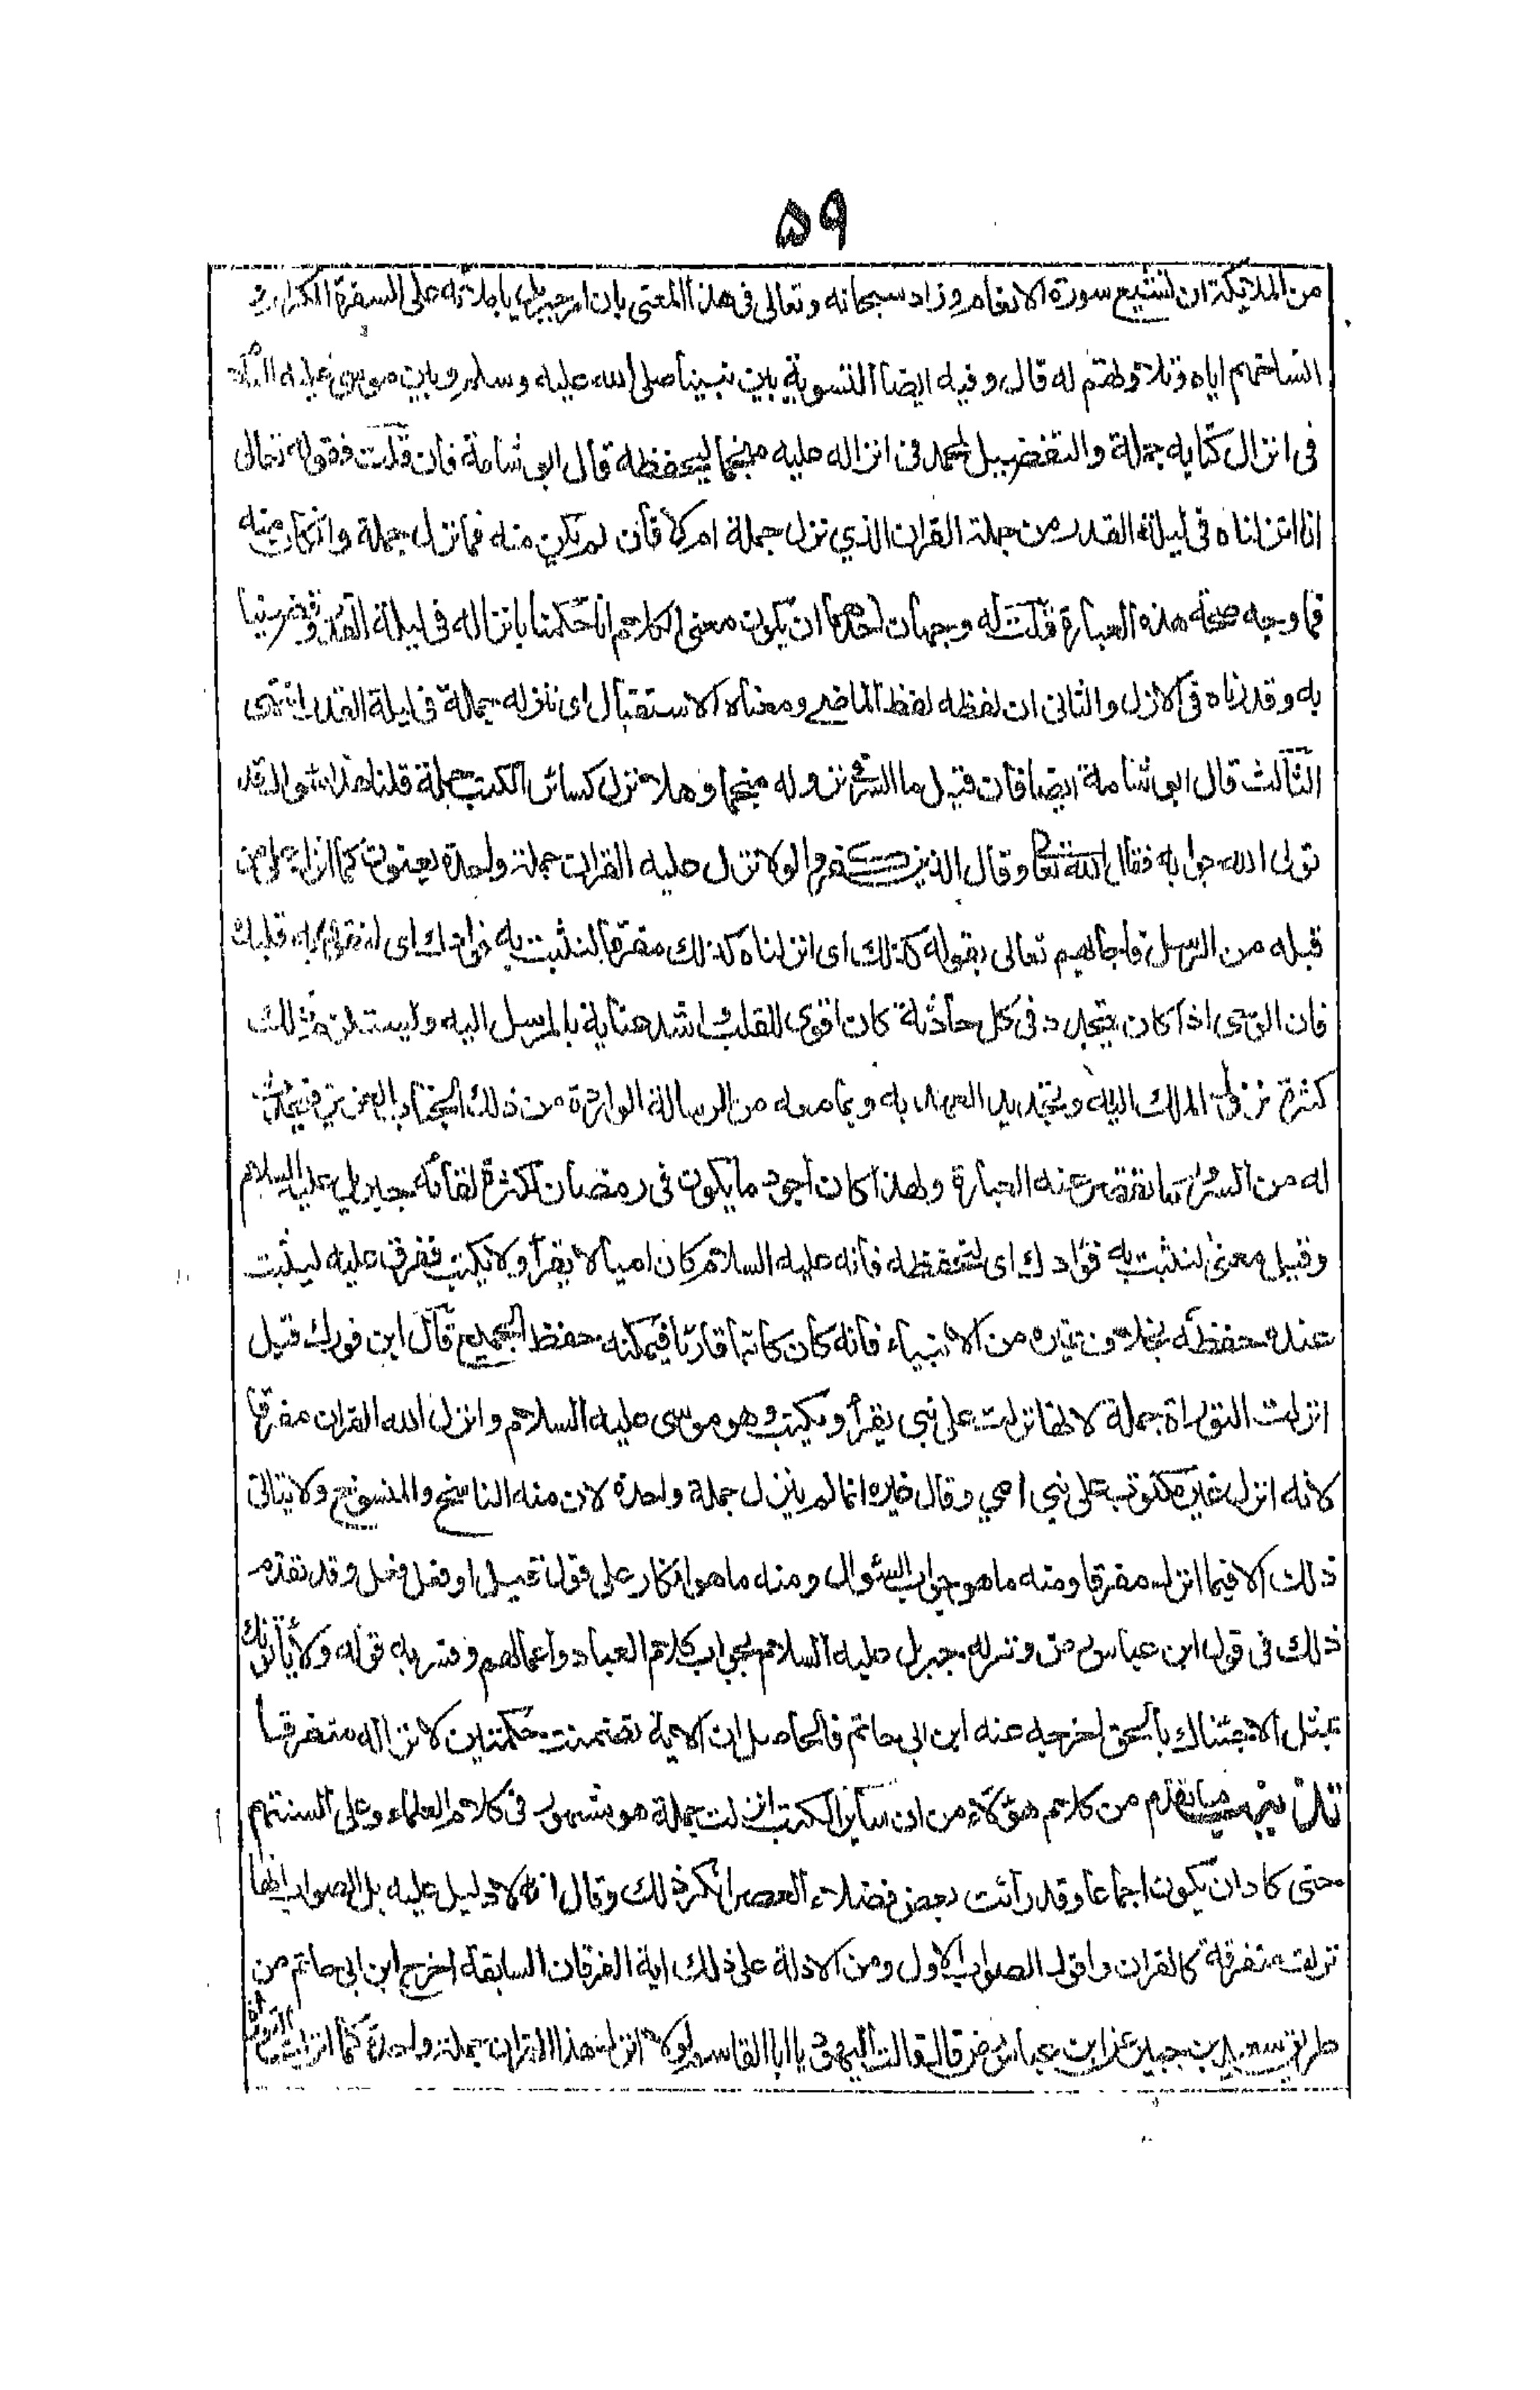 ۵۹
من الملائكة ان تشيع سورة الانعام وزاد سبحانه وتعالى فى هذا المعنى بان امر جبريل باملائه على السفرة الكرام و
انساخهم اياه وتلاوتهم له قال وفيه ايضا التسوية بين نبينا صلى الله عليه وسلم وبين موسى عليه السلام
فى انزال كتابه جملة والتفضيل لمحمد فى انزاله عليه منجما ليحفظه قال ابو شامة فان قلت فقوله تعالى
انا انزلناه فى ليلة القدر من جملة القران الذي نزل جملة ام لا فان لم يكن منه فما نزل جملة وان كان منه
فما وجه صحة هذه العبارة قلت له وجهان احدهما ان يكون معنى الكلام انا حكمنا بانزاله فى ليلة القدر وقضينا
به وقدرناه فى الازل والثانى ان لفظه لفظ الماضي ومعناه الاستقبال اى ننزله جملة فى ليلة القدر انتهى
الثالث قال ابو شامة ايضا فان قيل ما السر فى نزوله منجما وهلا نزل كسائر الكتب جملة قلنا هذا سؤال قد
تولى الله جوابه فقال الله تعا وقال الذين كفروا لولا نزل عليه القران جملة واحدة يعنون كما انزل على من
قبله من الرسل فاجابهم تعالى بقوله كذلك اى انزلناه كذلك مفرقا لنثبت به فؤادك اى لنقوى به قلبك
فان الوحى اذا كان يتجدد فى كل حادثة كان اقوى للقلب واشد عناية بالمرسل اليه وليستلزم ذلك
كثرة نزول الملك اليه وتجديد العهد به وبما معه من الرسالة الواردة من ذلك الجناب العزيز فيحدث
له من السرور ما تقصر عنه العبارة ولهذا كان اجود ما يكون فى رمضان لكثرة لقائه جبريل عليه السلام
وقيل معنى لنثبت به فؤادك اى لتحفظه فانه عليه السلام كان اميا لا يقرأ ولا يكتب ففرق عليه ليثبت
عنده حفظه بخلاف غيره من الانبياء فانه كان كاتبا قارئا فيمكنه حفظ الجميع قال ابن فورك قيل
انزلت التوراة جملة لانها نزلت على نبي يقرأ ويكتب وهو موسى عليه السلام وانزل الله القران مفرقا
لانه انزل غير مكتوب على نبي امي وقال غيره انما لم ينزل جملة واحدة لان منه الناسخ والمنسوخ ولا يتاتى
ذلك الا فيما انزل مفرقا ومنه ما هو جواب لسئوال ومنه ما هو انكار على قول قيل او فعل فعل وقد تقدم
ذلك فى قول ابن عباس رض ونزله جبريل عليه السلام بجواب كلام العباد واعمالهم وفسر به قوله ولا يأتونك
بمثل الا جئناك بالحق اخرجه عنه ابن ابى حاتم فالحاصل ان الاية تضمنت حكمتين لانزاله متفرقا
تذنيب ما تقدم من كلام هؤلاء من ان سائر الكتب انزلت جملة هو مشهور فى كلام العلماء وعلى السنتهم
حتى كاد ان يكون اجماعا وقد رأيت بعض فضلاء العصر انكر ذلك وقال انه لا دليل عليه بل الصواب انها
نزلت متفرقة كالقران واقول الصواب الاول ومن الادلة على ذلك اية الفرقان السابقة اخرج ابن ابى حاتم من
طريق سعيد بن جبير عن ابن عباس رض قال قالت اليهود يا ابا القاسم لولا انزل هذا القران جملة واحدة كما انزلت التوراة